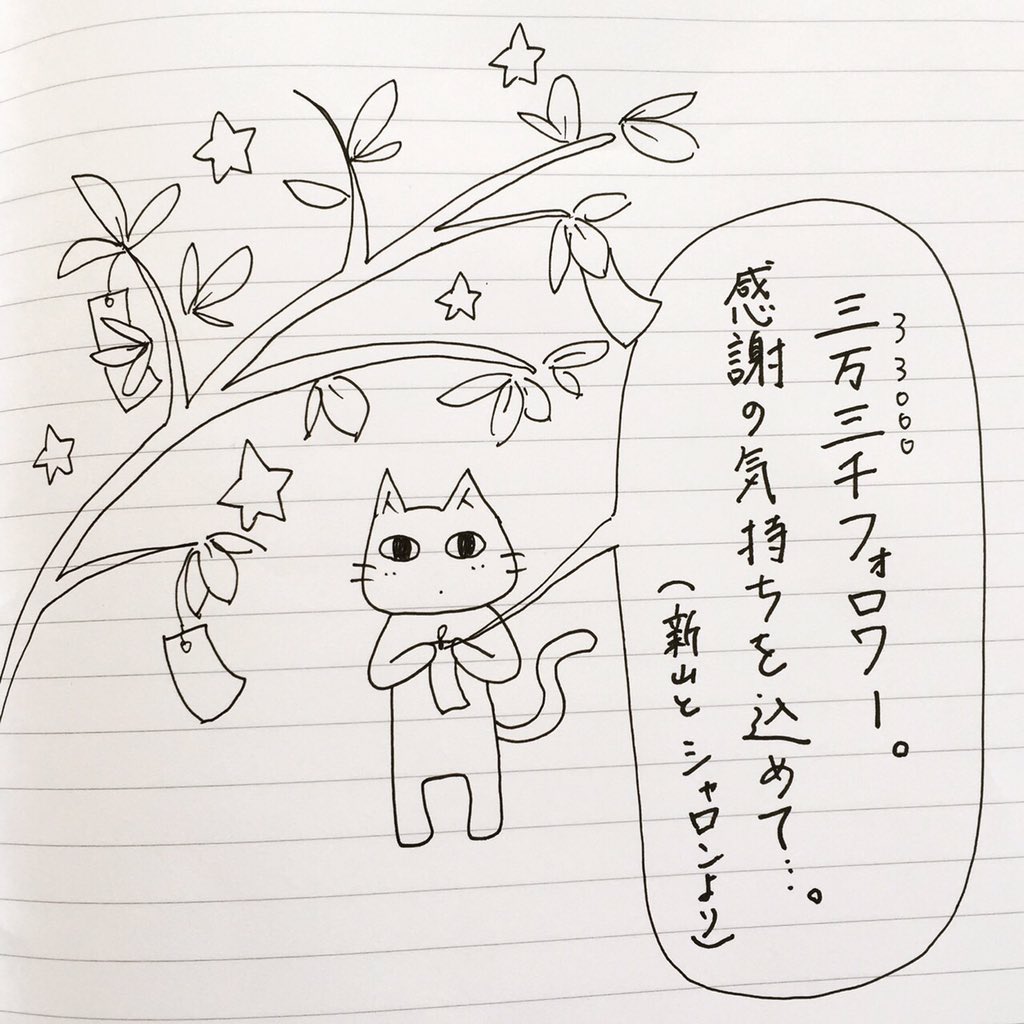 三万三千フォロワー。
33000
感謝の気持ちを込めて…。
(新山とシャロンより)